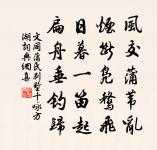 風交蒲葦亂
煙斷鳧鷖飛
日暮一笛起
扁舟垂釣歸
文同蒲氏別墅十詠方
湖詞典網集